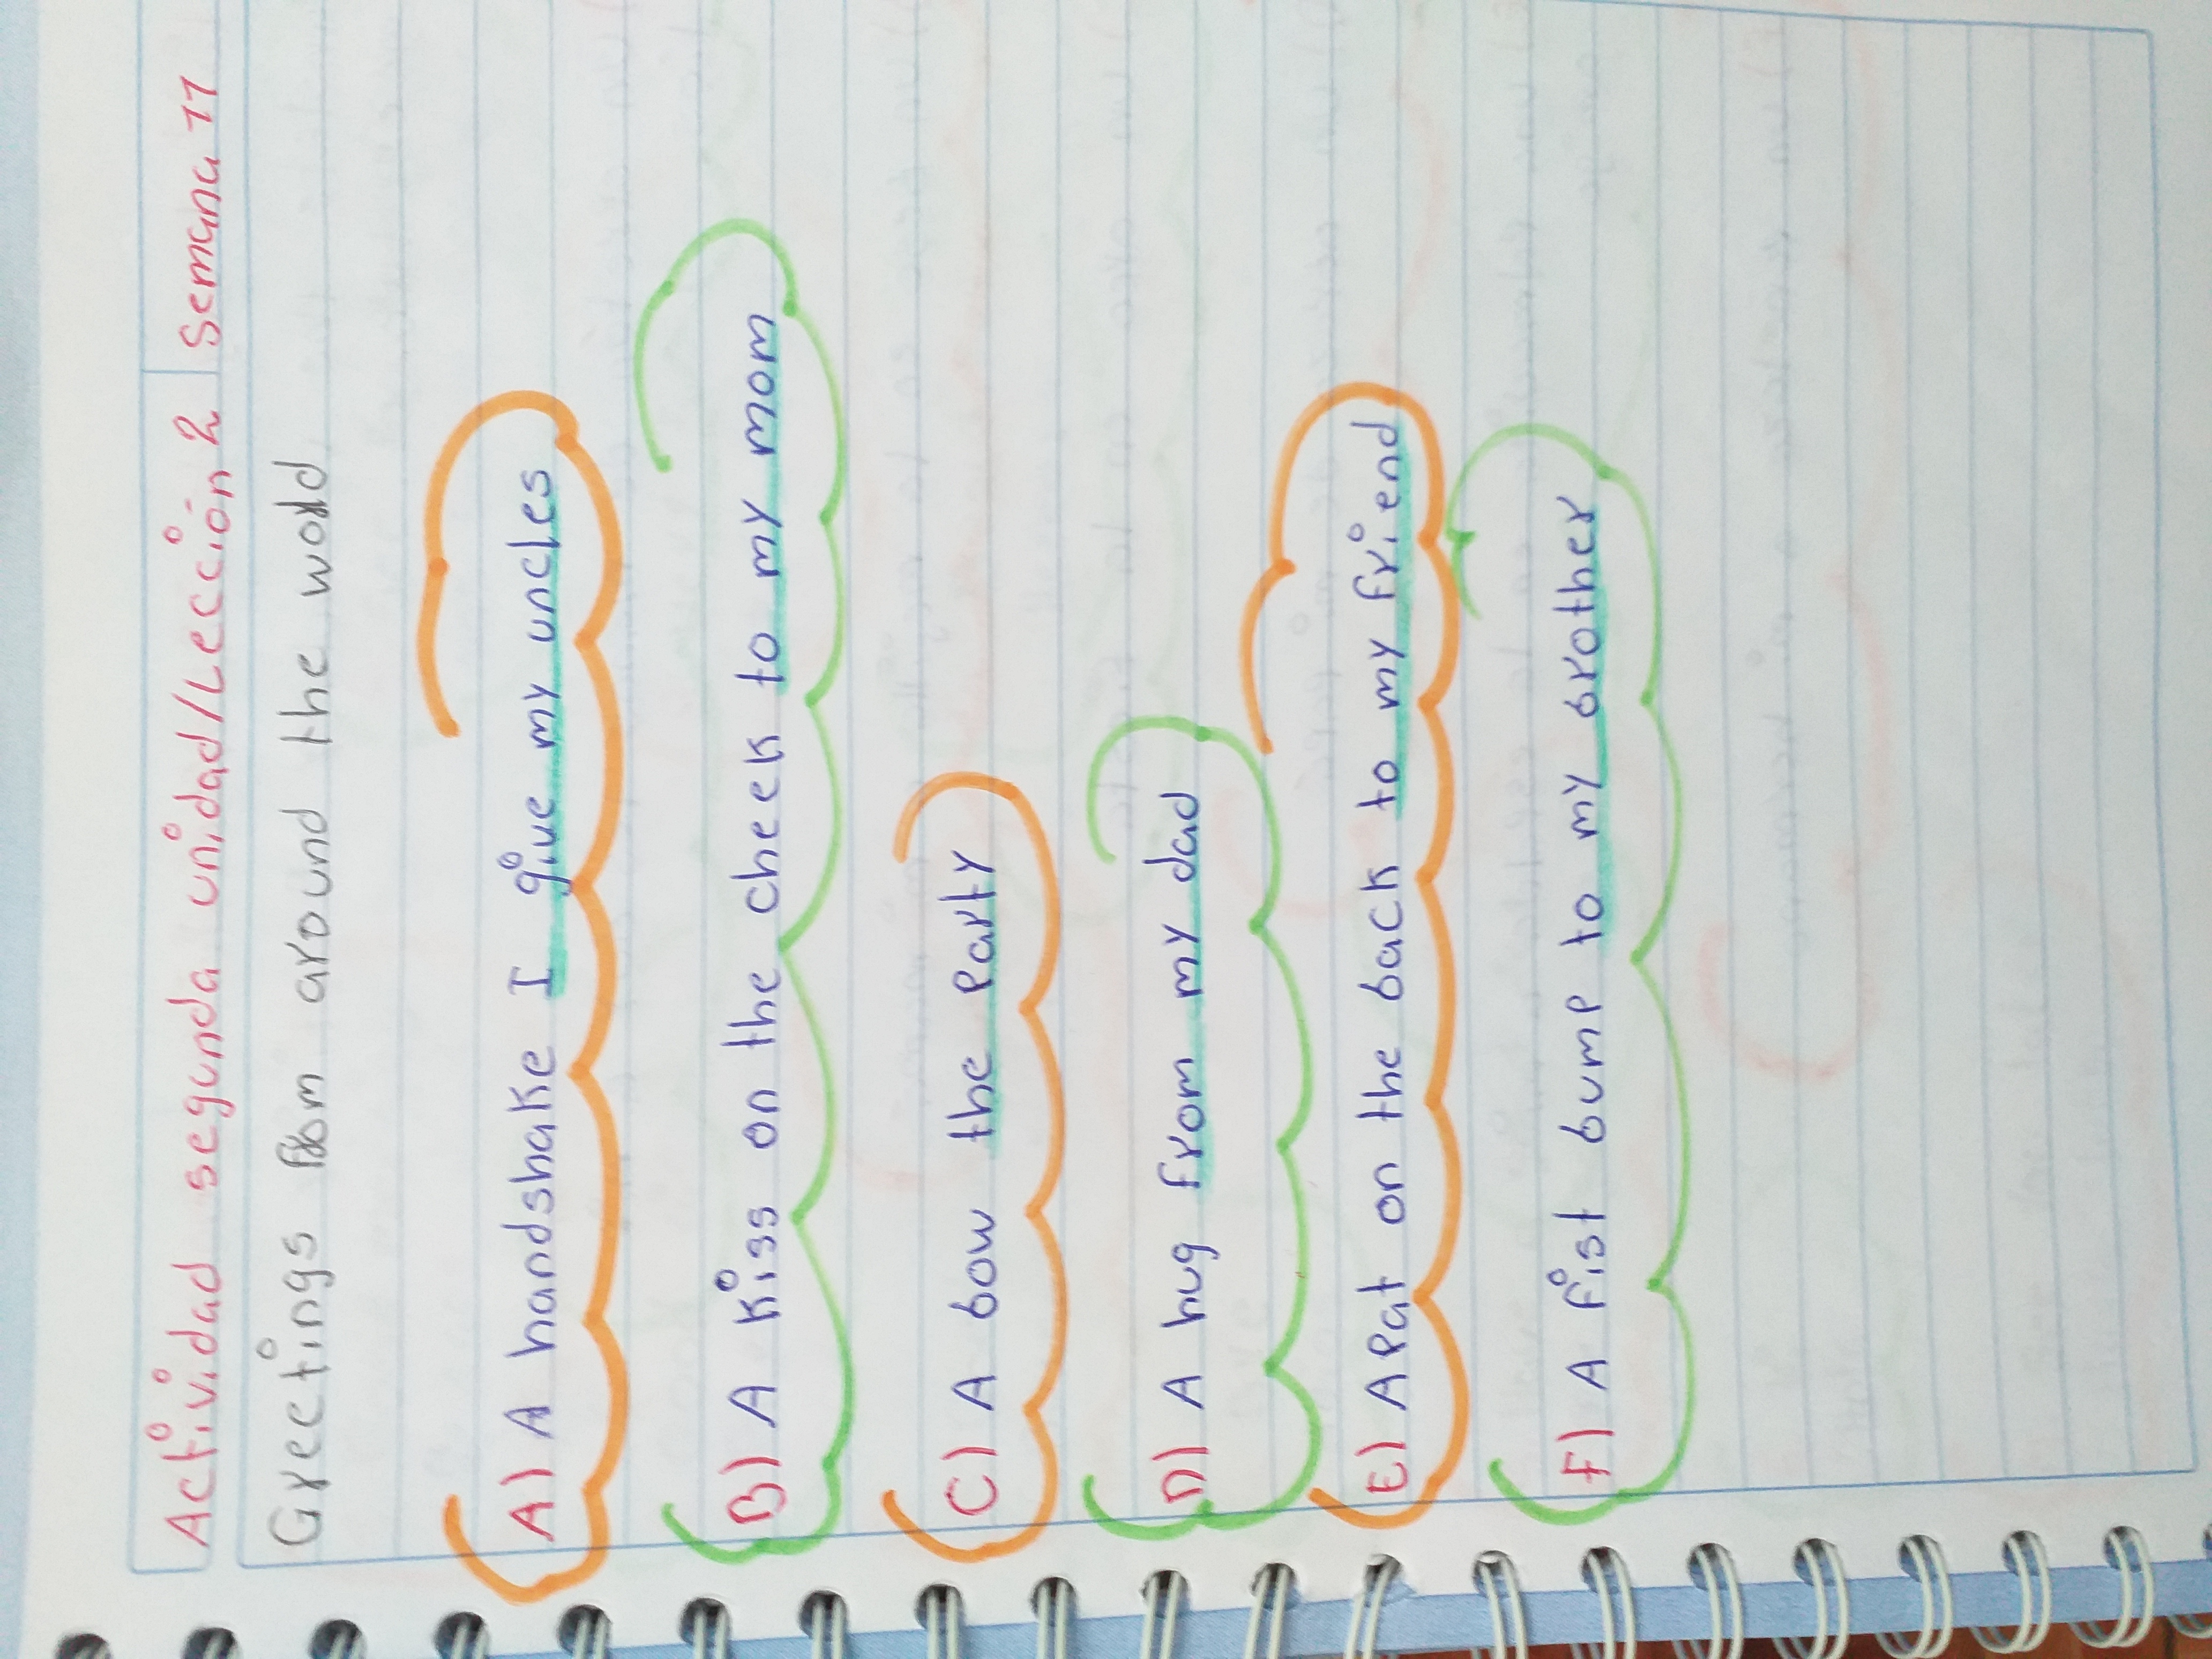 Actividad segunda unidad/Lección 2 Semana 11
Greetings from around the world
A) A handshake I give my uncles
B) A kiss on the cheek to my mom
C) A bow the party
D) A hug from my dad
E) A pat on the back to my friend
F) A fist bump to my brother